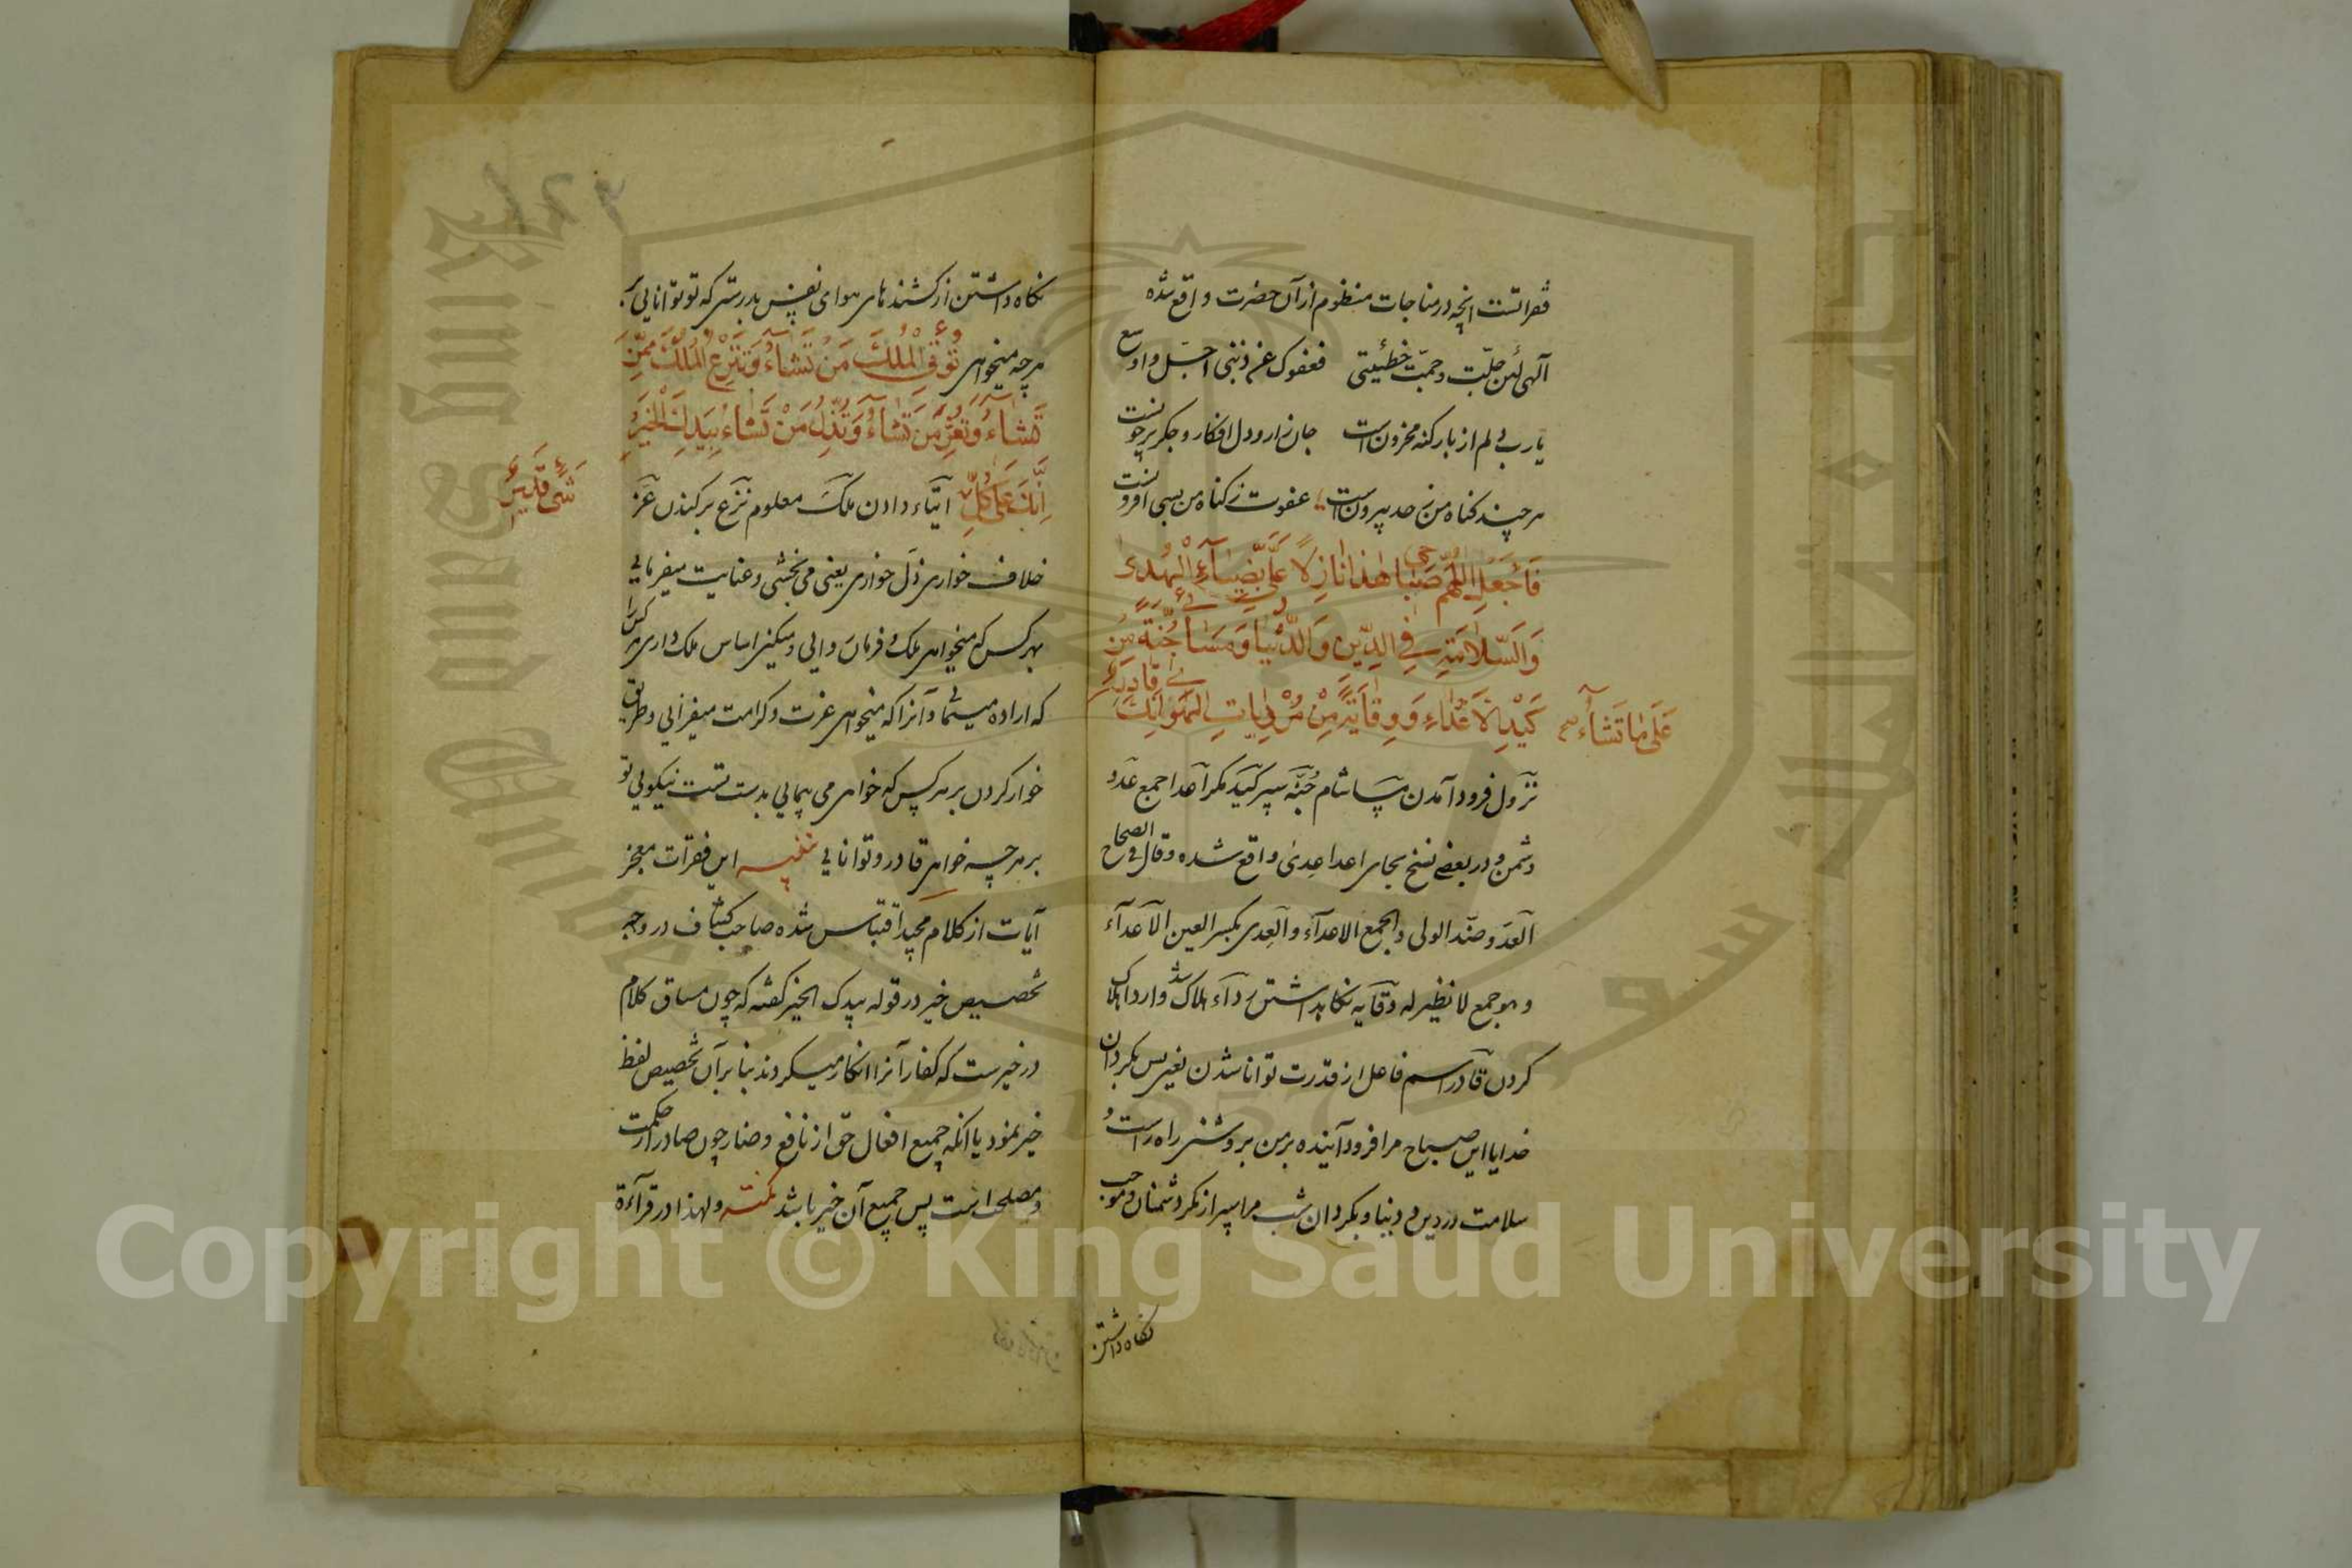 فقراتست انچه در مناجات منظوم از آن حضرت واقع شده
الهی لئن جلّت وجمّت خطیئتی فعفوک عن ذنبی اجلّ واوسع
یارب دلم از بار کنه محزونست جان زار ودل افکار وجکر پرخونست
هرچند کناه من ز حد بیرونست عفوت ز کناه من بسی افزونست
فَاجْعَلِ اللّٰهُمَّ صَبَاحِی هٰذَا نَازِلًا عَلَیَّ بِضِیَاءِ الْهُدیٰ
وَالسَّلَامَةِ فِی الدِّینِ وَالدُّنْیَا وَمَسَائِی جُنَّةً مِنْ
کَیْدِ الْاَعْدَاءِ وَوِقَایَةً مِنْ مُرْدِیَاتِ الْهَوٰی اِنَّکَ قَادِرٌ
عَلَی مَا تَشَاءُ صح
نزول فرود آمدن مسا شام جُنّه سپر کید مکر اعدا جمع عدو
دشمن ودر بعضی نسخ بجای اعدا عِدیٰ واقع شده وقال فی الصحاح
العدو ضدّ الولی والجمع الاعدآء والعِدی بکسر العین الاعدآء
وهو جمع لا نظیر له وقایه نکاهداشتن رداء هلاک شد وارداء هلاک
کردن قادر اسم فاعل از قدرت توانا شدن یعنی پس بکردان
خدایا این صباح مرا فرود آینده بر من بروشنی راه راست و
سلامت در دین و دنیا وبکردان شب مرا سپر از مکر دشمنان وموجب
نکاه داشتن
نکاه داشتن از کشندهای هوای نفس بدرستی که تو توانایی بر
هرچه میخواهی تُؤْتِی الْمُلْکَ مَنْ تَشَاءُ وَتَنْزِعُ الْمُلْکَ مِمَّنْ
تَشَاءُ وَتُعِزُّ مَنْ تَشَاءُ وَتُذِلُّ مَنْ تَشَاءُ بِیَدِکَ الْخَیْرُ
اِنَّکَ عَلَی کُلِّ ایتاء دادن ملک معلوم نزع برکندن عز
شَیْءٍ قَدِیرٌ
خلاف خواری ذل خواری یعنی می بخشی وعنایت میفرمایی
بهر کس که میخواهی ملک و فرمان روایی ومیکنی اساس ملک داری هر کس را
که اراده مینمایی وآنرا که میخواهی عزت وکرامت میفزایی وطریق
خوار کردن بر هر کس که خواهی می پیمایی بدست تست نیکویی تو
بر هرچه خواهی قادر وتوانایی تنبیه این فقرات معجز
آیات از کلام مجید اقتباس شده صاحب کشاف در وجه
تخصیص خیر در قوله بیدک الخیر کفته که چون مساق کلام
در خیرست که کفار آنرا انکار میکردند بنا بر آن تخصیص لفظ
خیر نمود یا انکه جمیع افعال حق از نافع وضار چون صادر از حکمت
ومصلحتست پس جمیع آن خیر باشد نکته ولهذا در قرآءة